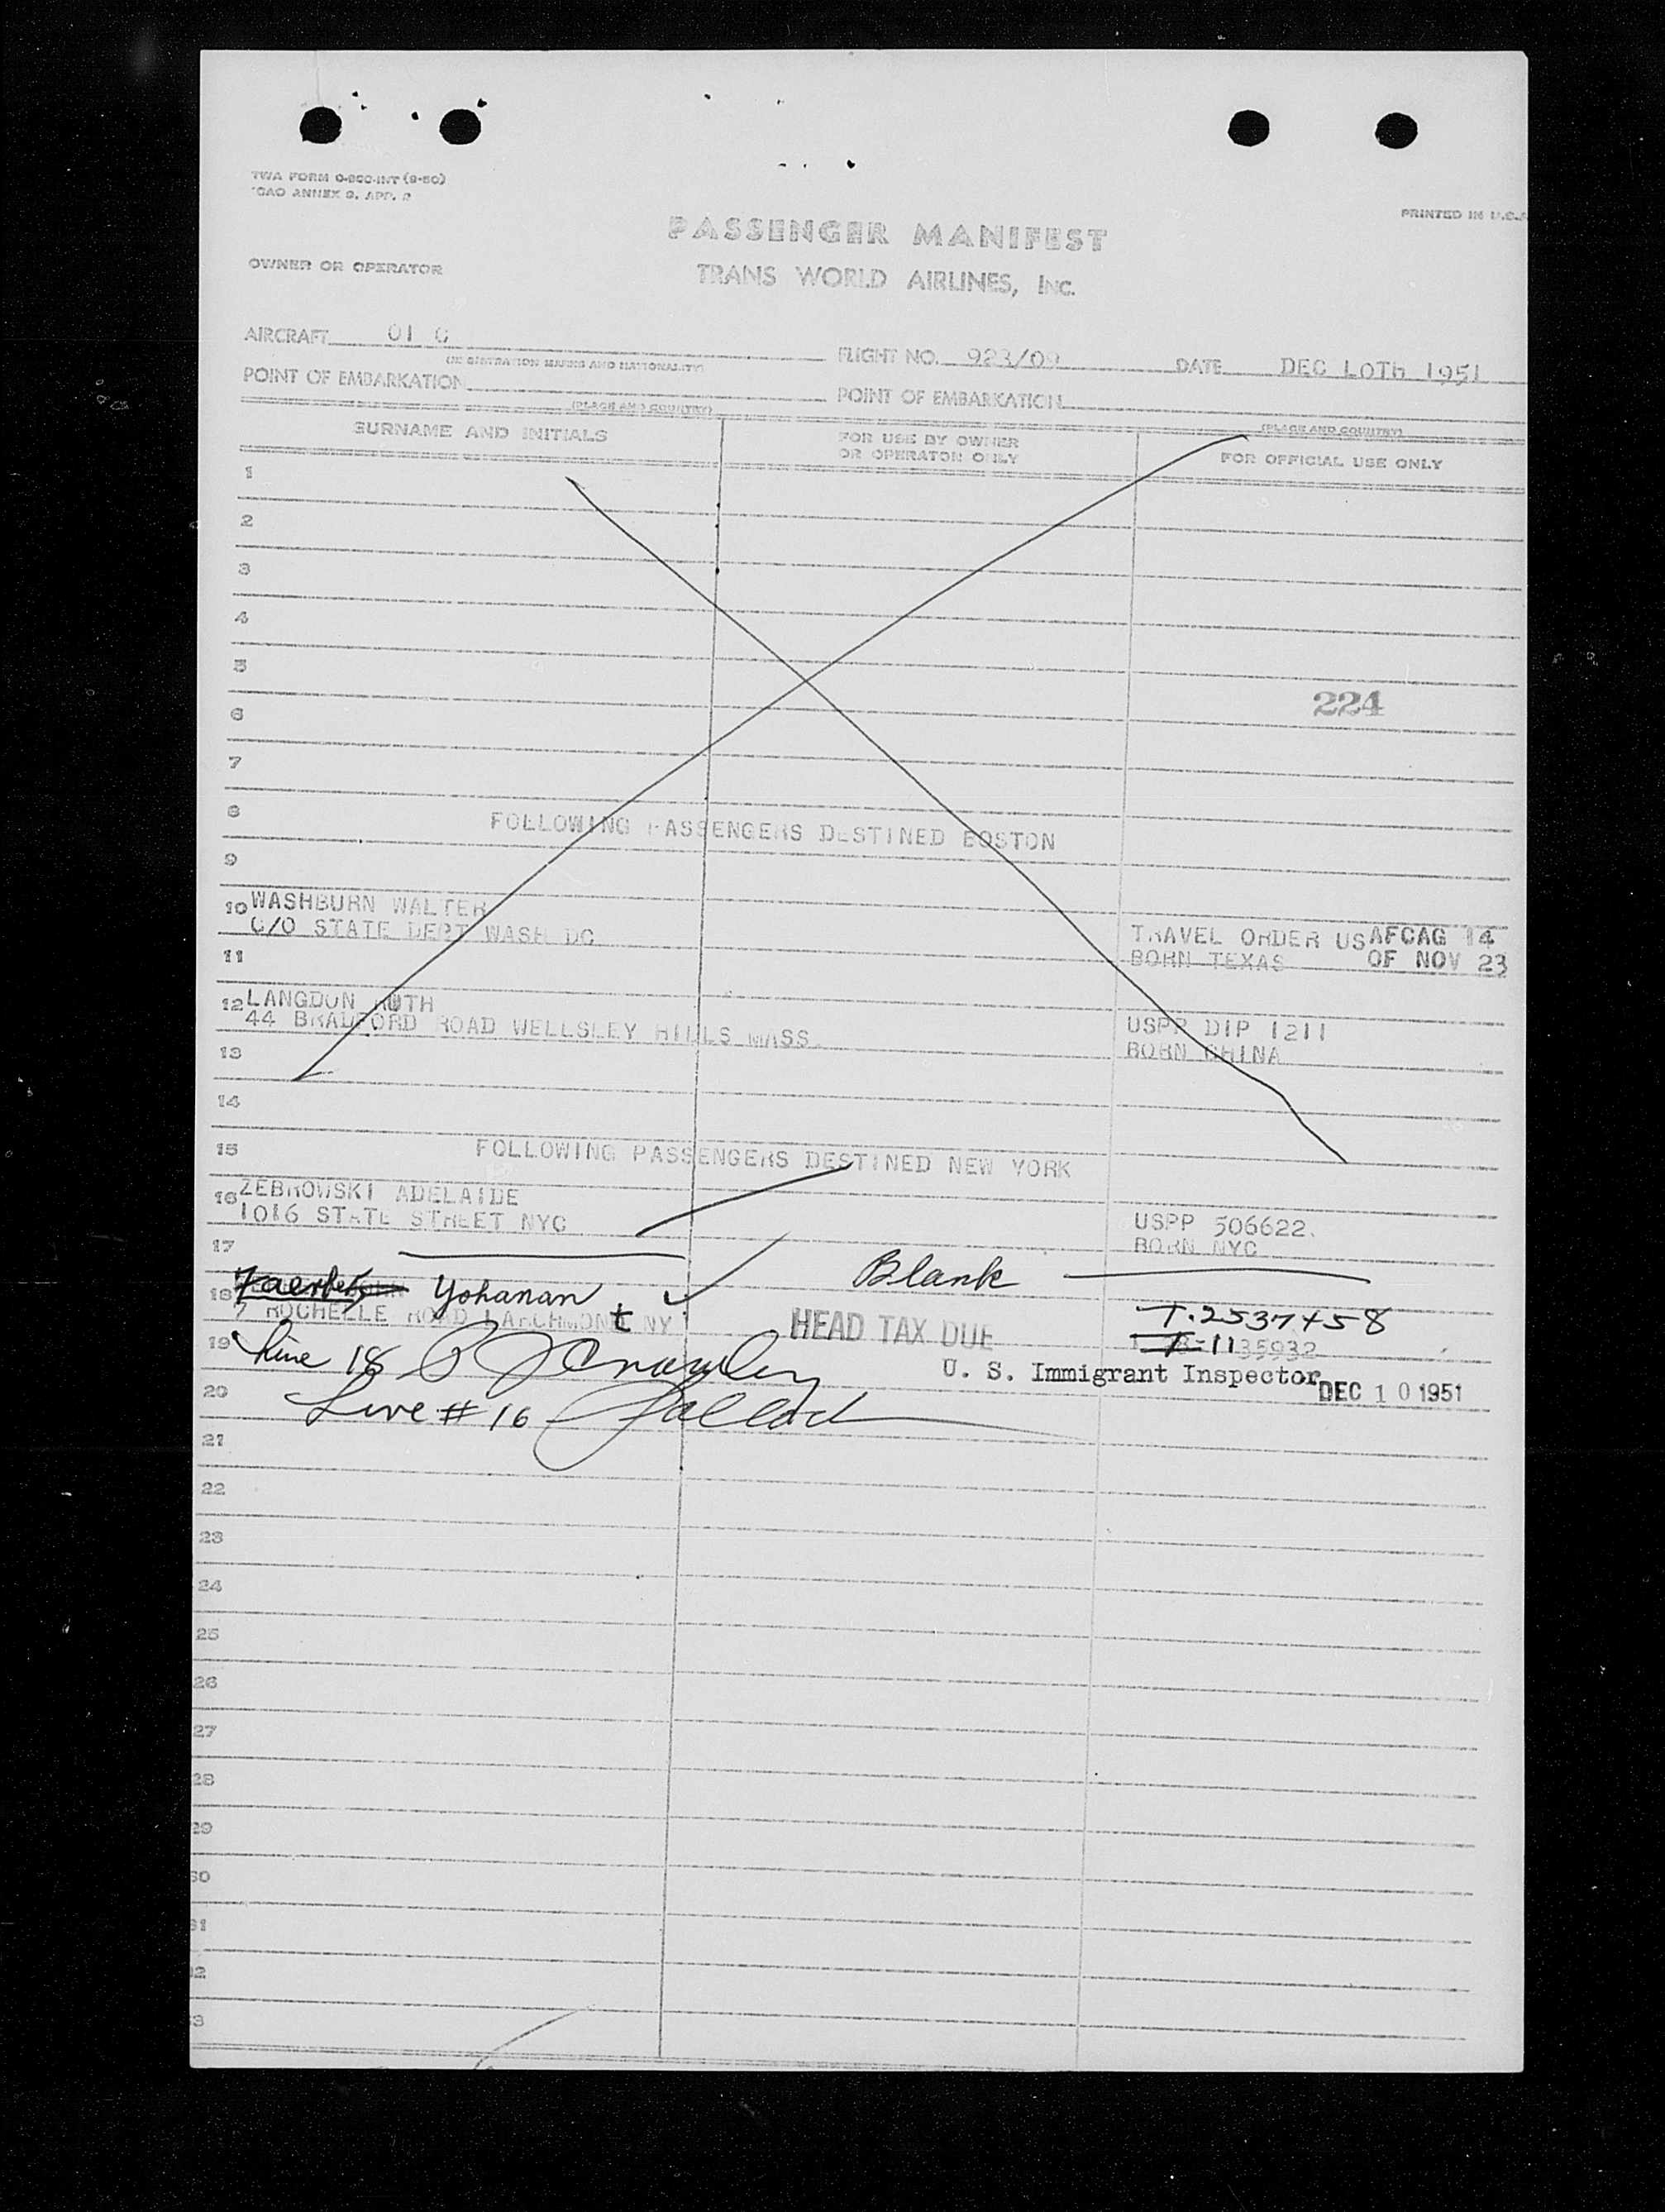 TWA FORM O-800-INT (9-50)
ICAO ANNEX 9, APP. 2
PRINTED IN U.S.A
PASSENGER MANIFEST
OWNER OR OPERATOR
TRANS WORLD AIRLINES, INC.
AIRCRAFT FLIGHT NO. 923/09 DATE DEC LOTH 1951
(REGISTRATION MARKS AND NATIONALITY)
POINT OF EMBARKATION POINT OF EMBARKATION
(PLACE AND COUNTRY) (PLACE AND COUNTRY)
SURNAME AND INITIALS FOR USE BY OWNER OR OPERATOR ONLY FOR OFFICIAL USE ONLY
1
2
3
4
5
224
6
7
8
FOLLOWING PASSENGERS DESTINED BOSTON
9
10 WASHBURN WALTER
C/O STATE DEPT WASH DC TRAVEL ORDER USAFCAG 14
11 BORN TEXAS OF NOV 23
12 LANGDON RUTH
44 BRADFORD ROAD WELLSLEY HILLS MASS. USPP DIP 1211
13 BORN CHINA
14
15 FOLLOWING PASSENGERS DESTINED NEW YORK
16 ZEBROWSKI ADELAIDE
1016 STATE STREET NYC USPP 506622.
17 BORN NYC
Blank
18 Yohanan
7 ROCHELLE ROAD LARCHMONT NY HEAD TAX DUE T-2537458
19 Line 18 1135932
U. S. Immigrant Inspector DEC 10 1951
20 Live # 16
21
22
23
24
25
26
27
28
29
30
31
32
33